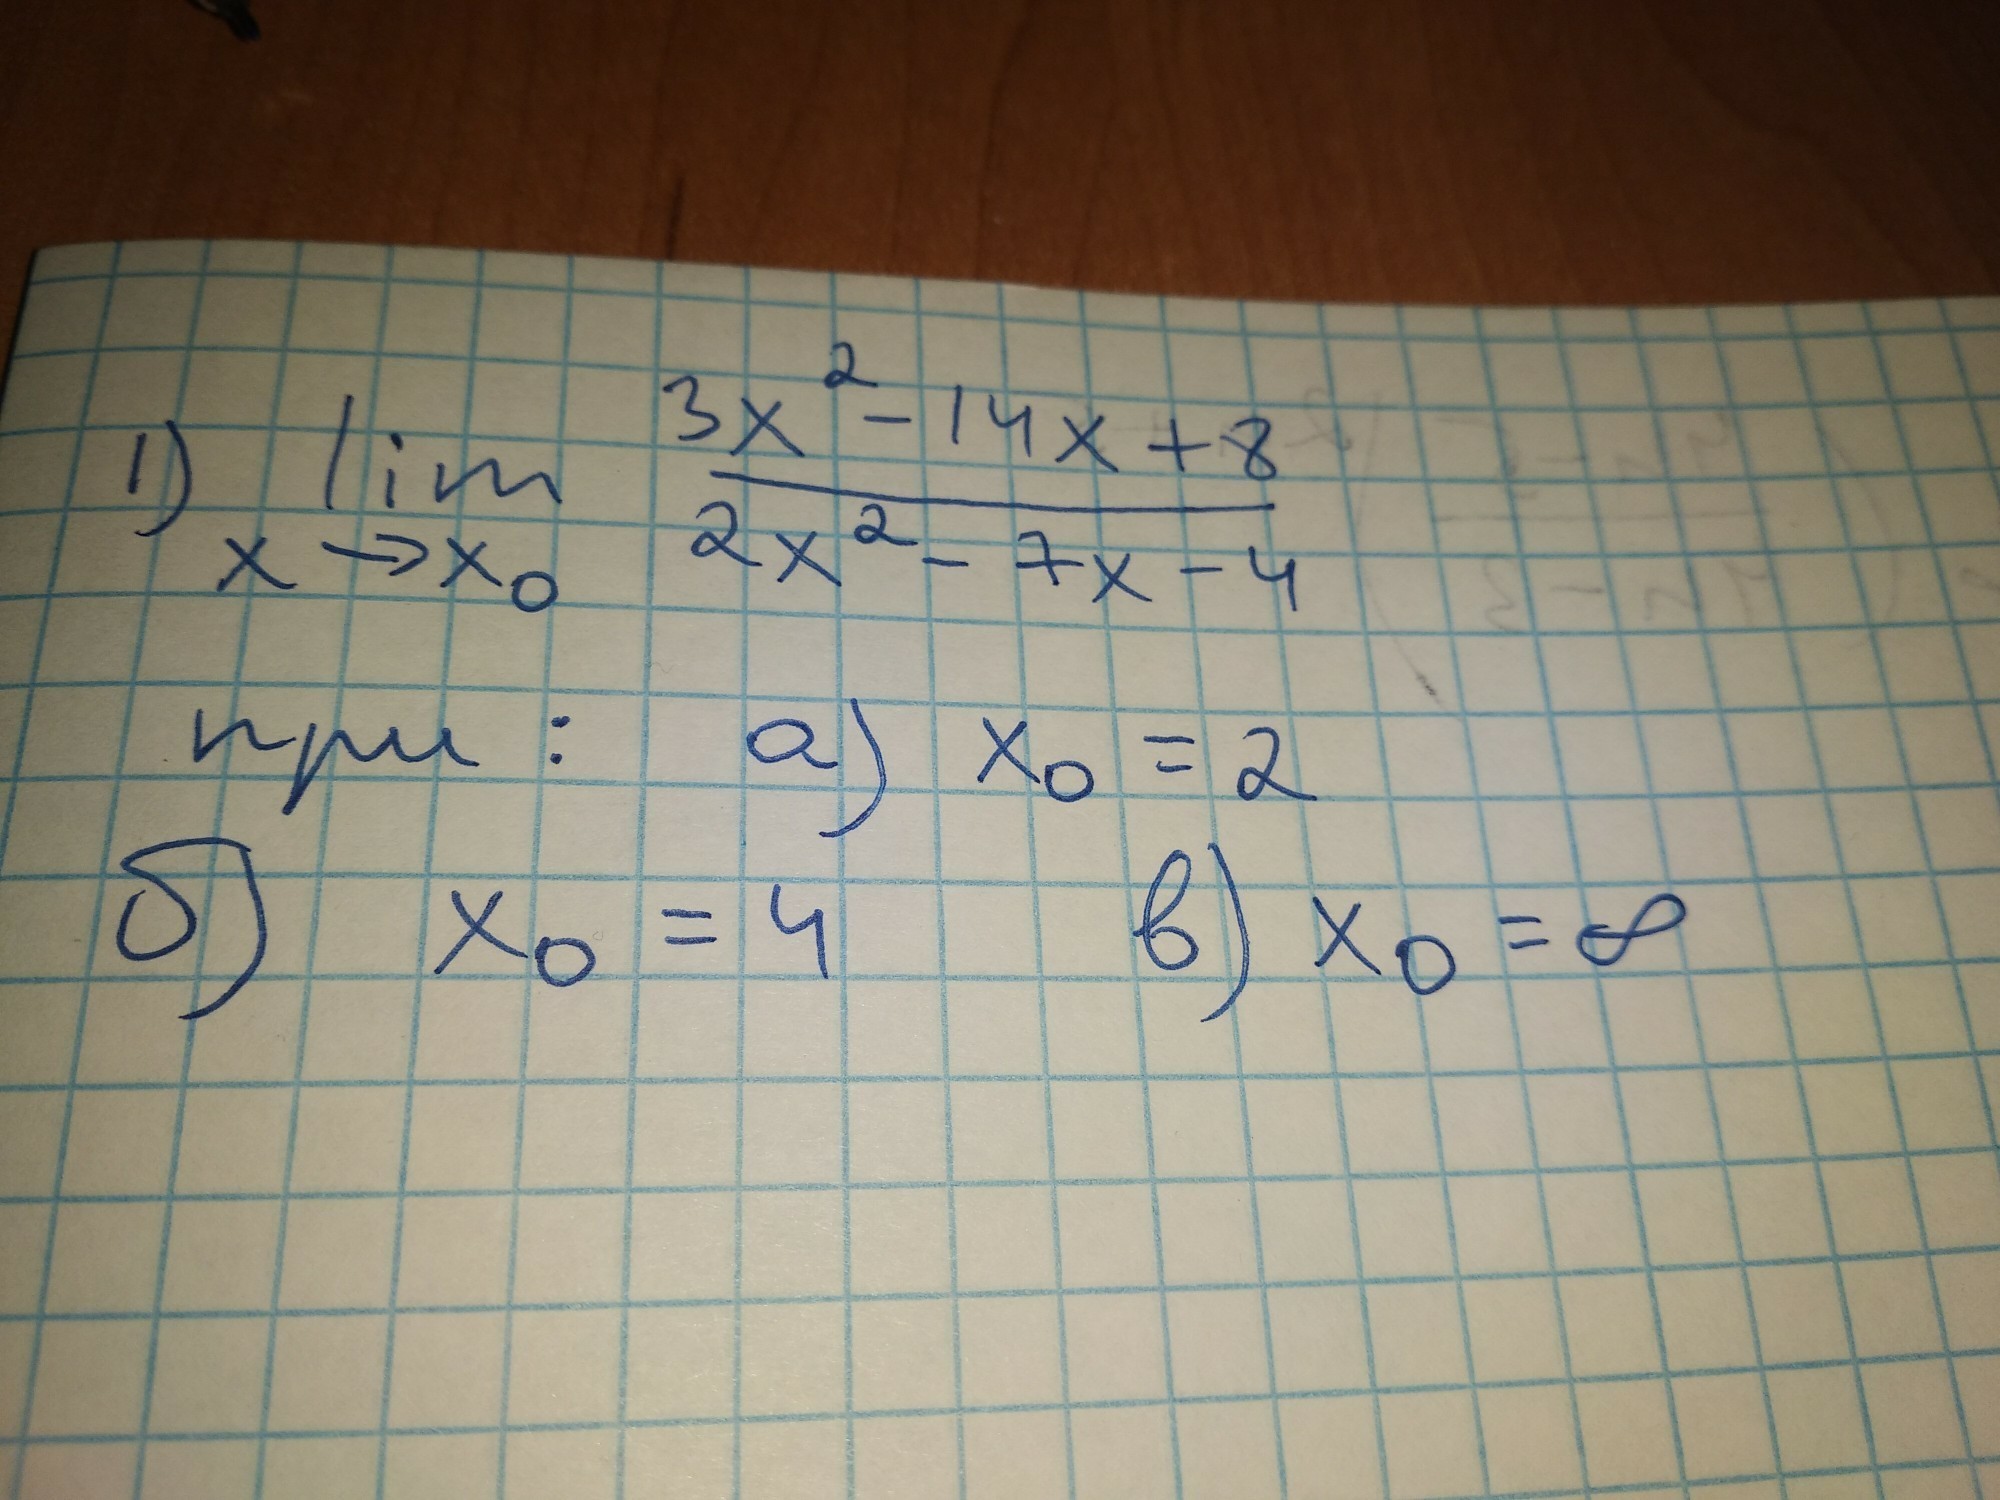 1) lim 3x² - 14x + 8
x → x₀ 2x² - 7x - 4
при : а) x₀ = 2
б) x₀ = 4 в) x₀ = ∞